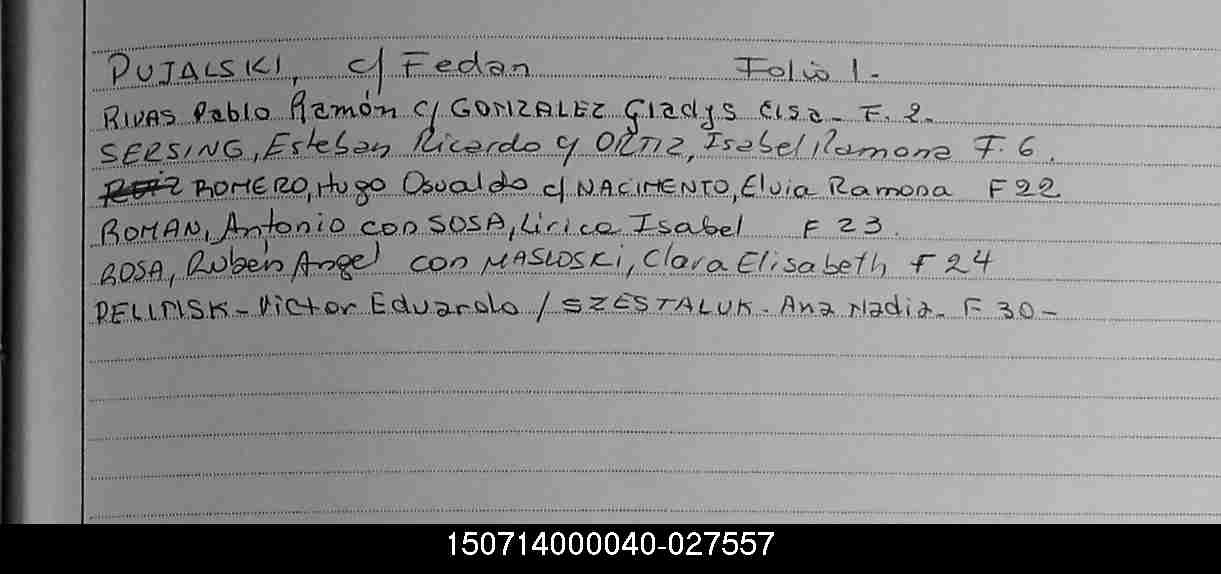 PUJALSKI, c/ Fedan Folio 1.-
RIVAS Pablo Ramón c/ GONZALEZ Gladys Elsa.- F. 2.-
SERSING, Esteban Ricardo y ORTIZ, Isabel Ramona F. 6.
ROMERO, Hugo Osvaldo c/ NACIMENTO, Elvia Ramona F 22
ROMAN, Antonio con SOSA, Lirica Isabel F 23.
ROSA, Ruben Angel con MASLOSKI, Clara Elisabeth F 24
Victor Eduardo / SZESTALUK - Ana Nadia.- F 30-
150714000040-027557